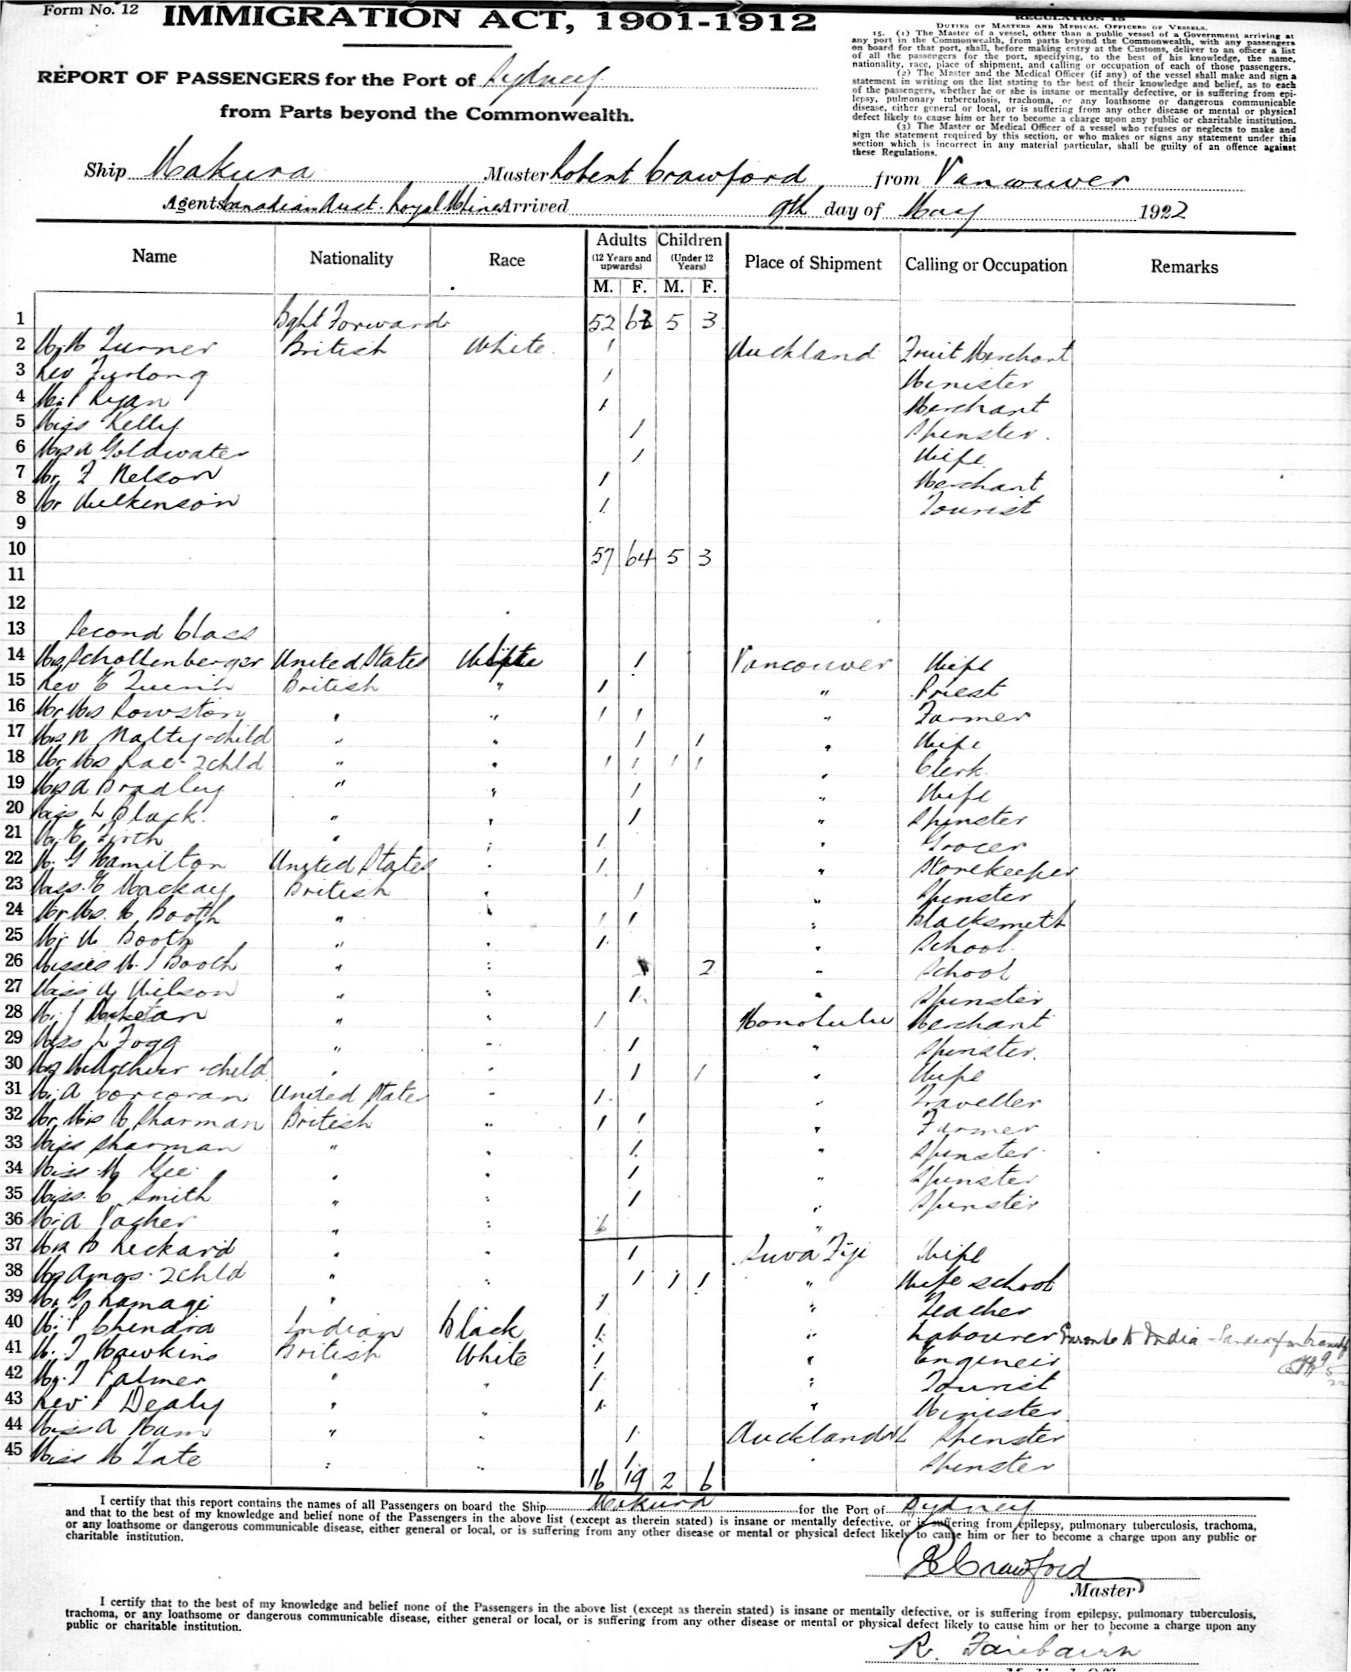 Form No. 12
IMMIGRATION ACT, 1901-1912
REPORT OF PASSENGERS for the Port of Sydney
from Parts beyond the Commonwealth.
REGULATION 15
DUTIES OF MASTERS AND MEDICAL OFFICERS OF VESSELS.
15. (1) The Master of a vessel, other than a public vessel of a Government arriving at
any port in the Commonwealth, from parts beyond the Commonwealth, with any passengers
on board for that port, shall, before making entry at the Customs, deliver to an officer a list
of all the passengers for the port, specifying, to the best of his knowledge, the name,
nationality, race, place of shipment, and calling or occupation of each of those passengers.
(2) The Master and the Medical Officer (if any) of the vessel shall make and sign a
statement in writing on the list stating to the best of their knowledge and belief, as to each
of the passengers, whether he or she is insane or mentally defective, or is suffering from epi-
lepsy, pulmonary tuberculosis, trachoma, or any loathsome or dangerous communicable
disease, either general or local, or is suffering from any other disease or mental or physical
defect likely to cause him or her to become a charge upon any public or charitable institution.
(3) The Master or Medical Officer of a vessel who refuses or neglects to make and
sign the statement required by this section, or who makes or signs any statement under this
section which is incorrect in any material particular, shall be guilty of an offence against
these Regulations.
Ship Makura Master Robert Crawford from Vancouver
Agents Canadian Aust. Royal M Line Arrived 9th day of May 1922
Name Nationality Race Adults (12 Years and upwards) Children (Under 12 Years) Place of Shipment Calling or Occupation Remarks
M. F. M. F.
1 Bght Forward 52 63 5 3
2 Turner British White 1 Auckland Fruit Merchant
3 Rev Furlong 1 Minister
4 Ryan 1 Merchant
5 Miss Kelly 1 Spinster.
6 Mrs A Goldwater 1 Wife
7 Mr F Nelson 1 Merchant
8 Mr Wilkinson 1 Tourist
9
10 57 64 5 3
11
12
13 Second Class
14 Mrs Schollenberger United States White 1 Vancouver Wife
15 Rev British " 1 " Priest
16 Mr Mrs Rowston " " 1 1 " Farmer
17 Mrs N Malty child " " 1 1 " Wife
18 Mr Mrs Rae 2 chld " " 1 1 1 1 " Clerk
19 Mrs A Bradley " " 1 " Wife
20 Miss L Black. " " 1 " Spinster
21 Mr E Firth " " 1 " Grocer
22 Mr G Hamilton United States " 1 " Storekeeper
23 Miss E Mackay British " 1 " Spinster
24 Mr Mrs. W Booth " " 1 1 " Blacksmith
25 Mr W Booth " " 1 " School.
26 Misses Booth " " 2 " School
27 Miss Wilson " " 1 " Spinster
28 Mr J " " 1 Honolulu Merchant
29 Miss L Fogg " " 1 " Spinster.
30 Mrs child " " 1 1 " Wife
31 Mr A Corcoran United States " 1 " Traveller
32 Mr Mrs Sharman British " 1 1 " Farmer
33 Miss Sharman " " 1 " Spinster
34 Miss Gee " " 1 " Spinster
35 Miss C Smith " " 1 " Spinster
36 Mr A Vagher " " "
37 Mrs Reckard " " 1 Suva Fiji Wife
38 Mrs Amos 2 chld " " 1 1 1 " Wife School
39 Mr G Ramage " " 1 " Teacher
40 Mr Chendra Indian Black 1 " Labourer En route to India
41 Mr J Hawkins British White 1 " Engineer
42 Mr J Palmer " " 1 " Tourist
43 Rev Dealy " " 1 " Minister
44 Miss A Ham " " 1 Auckland Spinster
45 Miss Tate " " 1 " Spinster
16 19 2 6
I certify that this report contains the names of all Passengers on board the Ship Makura for the Port of Sydney
and that to the best of my knowledge and belief none of the Passengers in the above list (except as therein stated) is insane or mentally defective, or is suffering from epilepsy, pulmonary tuberculosis, trachoma,
or any loathsome or dangerous communicable disease, either general or local, or is suffering from any other disease or mental or physical defect likely to cause him or her to become a charge upon any public or
charitable institution.
R Crawford
Master
I certify that to the best of my knowledge and belief none of the Passengers in the above list (except as therein stated) is insane or mentally defective, or is suffering from epilepsy, pulmonary tuberculosis,
trachoma, or any loathsome or dangerous communicable disease, either general or local, or is suffering from any other disease or mental or physical defect likely to cause him or her to become a charge upon any
public or charitable institution.
R. Fairbairn